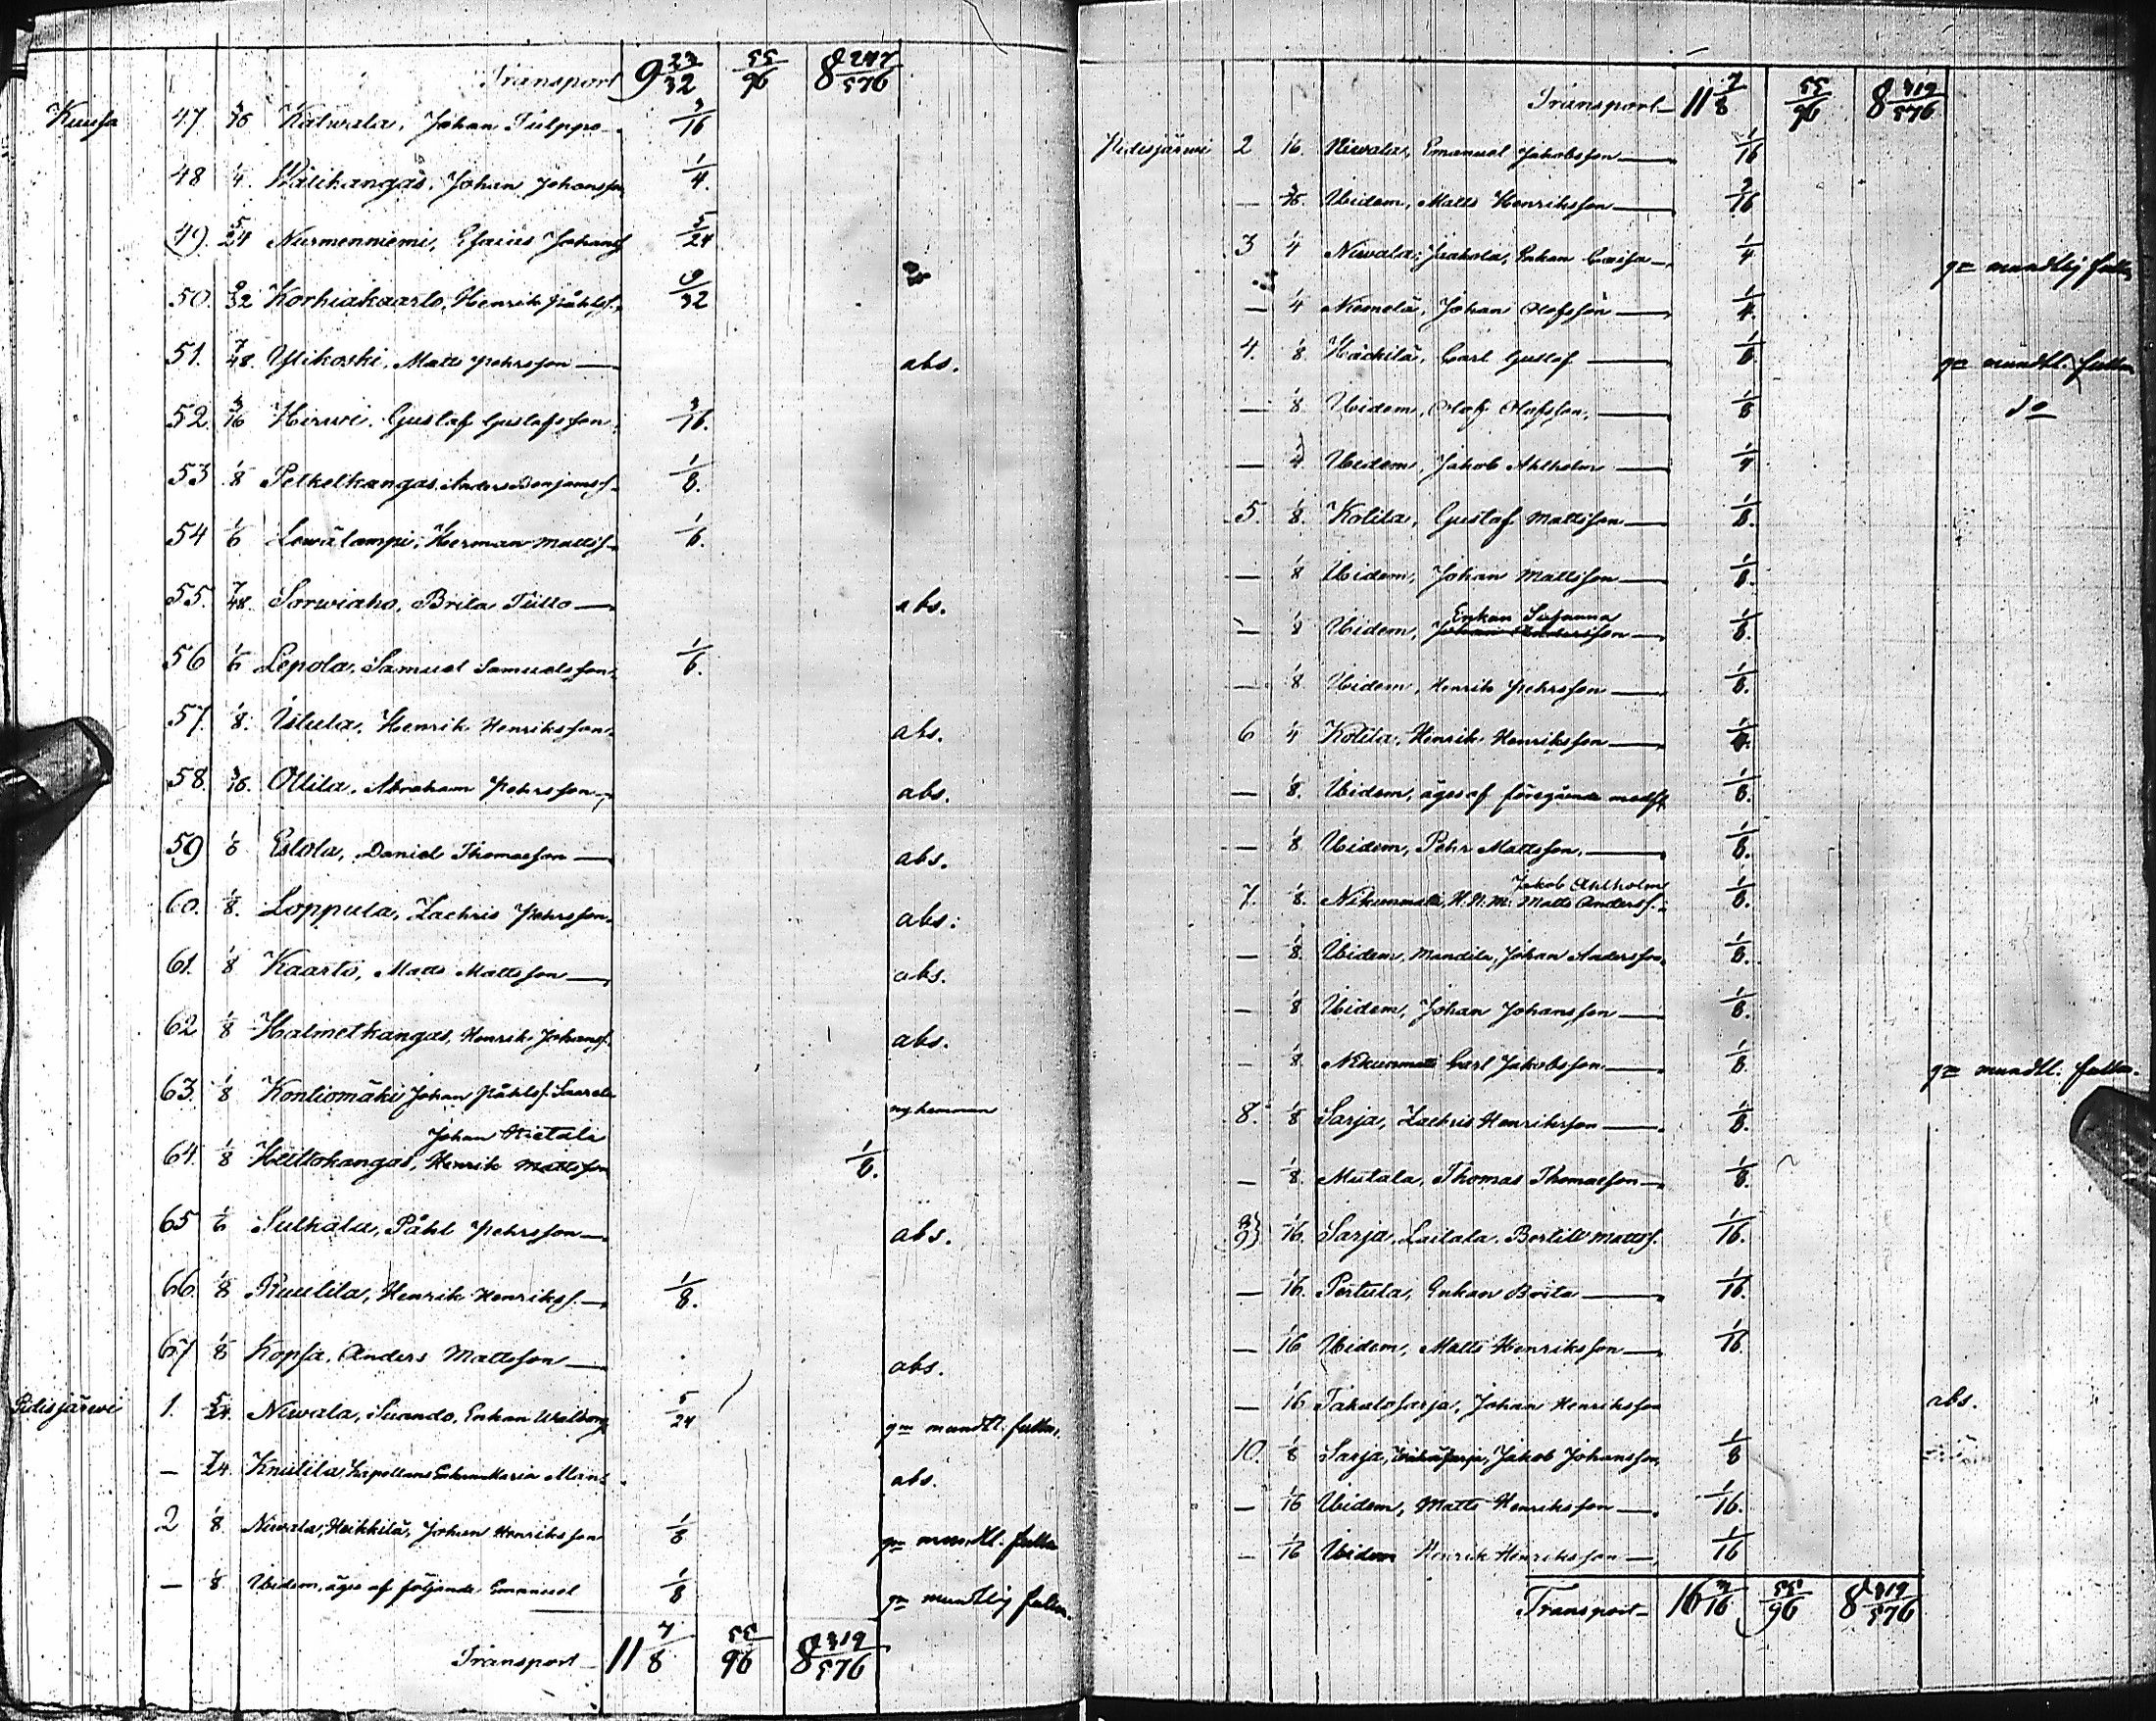 Transport 9 23/32 55/96 8 247/576
Kuusa 47. 3/16 Katwala, Johan Tulppo 3/16
48 1/4. Wälikangas, Johan Johansson 1/4.
49. 5/24 Nurmenniemi, Esaias Johansf 5/24
50. 9/32 Korhiakaarto, Henrik Påhlsf. 9/32
51. 7/48. Ylikoski, Matts Pehrsson — abs.
52. 3/16 Hirwi, Gustaf Gustafsson 3/16.
53 1/8 Petkelkangas, Anders Benjamsf. 1/8.
54 1/6 Lewälampi, Herman Mattsf. 1/6.
55. 7/48. Sorwiaho, Brita Tiitto — abs.
56 1/6 Lepola, Samuel Samuelsson. 1/6.
57. 1/8. Ulula, Henrik Henriksson. abs.
58. 3/16. Ollila, Abraham Pehrsson abs.
59 1/6 Eskola, Daniel Thomasson — abs.
60. 1/8. Loppula, Zachris Pehrsson. abs:
61. 1/8 Kaarto, Matts Mattsson — abs.
62 1/8 Halmetkangas, Henrik Johansf. abs.
63. 1/8 Kontiomäki Johan Påhlsf. Saarela ny hemman
Johan Hietala
64. 1/8 Hiittokangas, Henrik Mattsson 1/8.
65 1/6 Sulkala, Påhl Pehrsson — abs.
66. 1/8 Ruutila, Henrik Henriksf. — 1/8.
67 1/8 Kopsa, Anders Mattsson — abs.
Pidisjärwi 1. 5/24. Niwala, Suando, Enkan Walborg 5/24 gm mundtl. fullm.
— 7/24. Knuutila, Kapellans Enkan Maria Mans abs.
2 1/8. Niwala, Heikkilä, Johan Henriksson 1/8 gm mundtl. fullm
— 1/8. Ibidem, äges af följande Emanuel 1/8 gm mundtlig fullm.
Transport 11 7/8 55/96 8 319/576
Transport 11 7/8 55/96 8 319/576
Pidisjärwi 2 1/16. Niwala, Emanuel Jakobsson — 1/16
— 3/16. Ibidem, Matts Henriksson — 3/16
3 1/4 Niwala, Jaakola, Enkan Caisa — 1/4 gm mundtlig fullm
— 1/4 Niemelä, Johan Olofsson — 1/4.
4. 1/8. Häckilä, Carl Gustaf — 1/8. gm mundtl. fullm
— 1/8 Ibidem, Olof Olofsson, — 1/8 do
— 1/4 Ibidem, Jakob Ahlholm — 1/4
5. 1/8. Kotila, Gustaf Mattsson — 1/8.
— 1/8 Ibidem, Johan Mattsson — 1/8.
Enkan Susanna
— 1/8 Ibidem, Johan Andersson — 1/8.
— 1/8. Ibidem, Henrik Pehrsson — 1/8.
6 1/4 Kotila, Henrik Henriksson — 1/4.
— 1/8. Ibidem, äges af föregående 1/8.
— 1/8 Ibidem, Pehr Mattsson, — 1/8.
Jakob Ahlholm
7. 1/8. Nikunmatti, H. N. M. Matts Andersf. 1/8.
— 1/8. Ibidem, Mandila, Johan Andersson. 1/8.
— 1/8 Ibidem, Johan Johansson — 1/8.
— 1/8. Nikunmatti Carl Jakobsson — 1/8 gm mundtl. fullm.
8. 1/8 Sarja, Zachris Henriksson — 1/8.
— 1/8. Mutala, Thomas Thomasson — 1/8.
8 9} 1/16. Sarja, Laitala, Bertill Mattsf. 1/16.
— 1/16. Pertula, Enkan Brita — 1/16.
— 1/16 Ibidem, Matts Henriksson — 1/16.
— 1/16 Takalosarja, Johan Henriksson abs.
10. 1/8 Sarja, Jakob Johansson, 1/8
— 1/16 Ibidem, Matts Henriksson — 1/16.
— 1/16 Ibidem Henrik Henriksson — 1/16
Transport 16 3/16 55/96 8 319/576